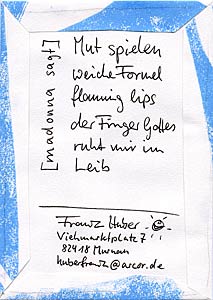 [madonna sagt]
Mut spielen
weiche Formel
flaming lips
der Finger Gottes
ruht mir im
Leib
Franz Huber
Viehmarktplatz 7
82418 Murnau
huberfranz@arcor.de